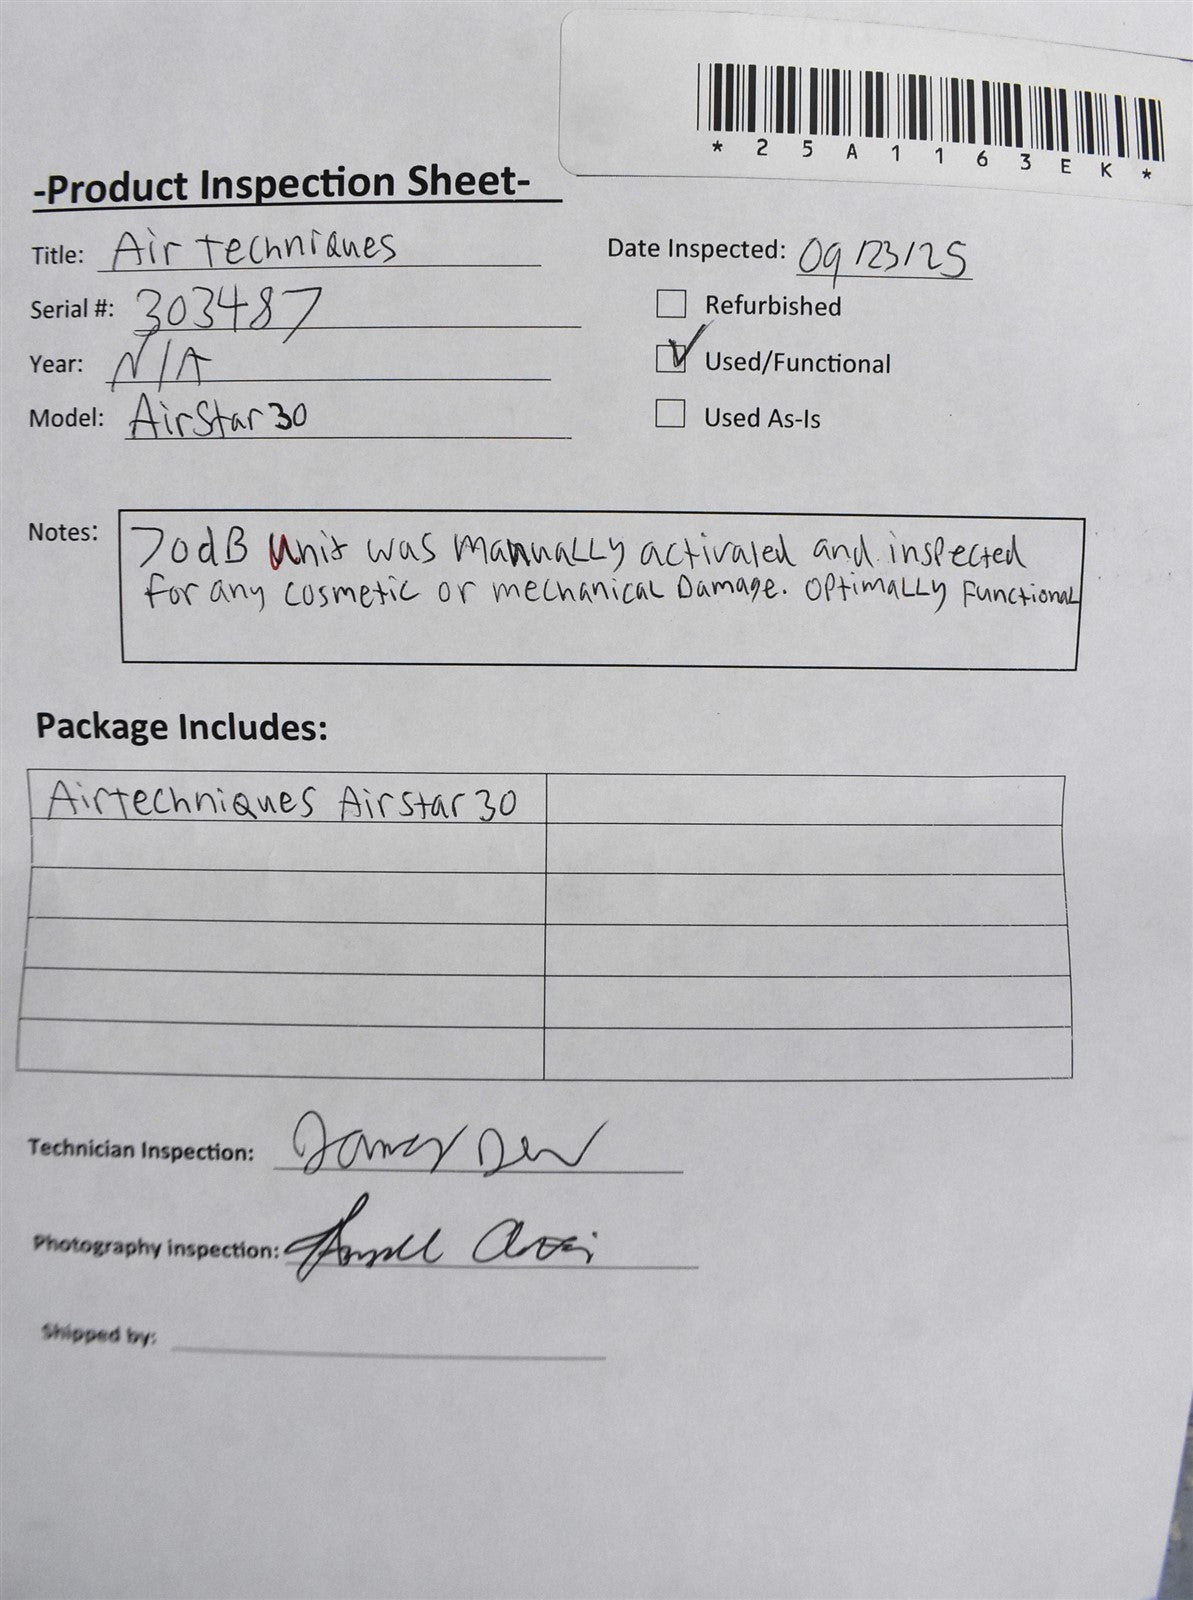 * 2 5 A 1 1 6 3 E K *
-Product Inspection Sheet-
Title: Air techniques
Date Inspected: 09/23/25
Serial #: 303487
Refurbished
Year: N/A
Used/Functional
Model: AirStar 30
Used As-Is
Notes: 70dB Unit was manuaLLy activated and inspected
for any cosmetic or mechanicaL Damage. OptimaLLy FunctionaL
Package Includes:
Airtechniques Airstar 30
Technician Inspection:
Photography inspection:
Shipped by: